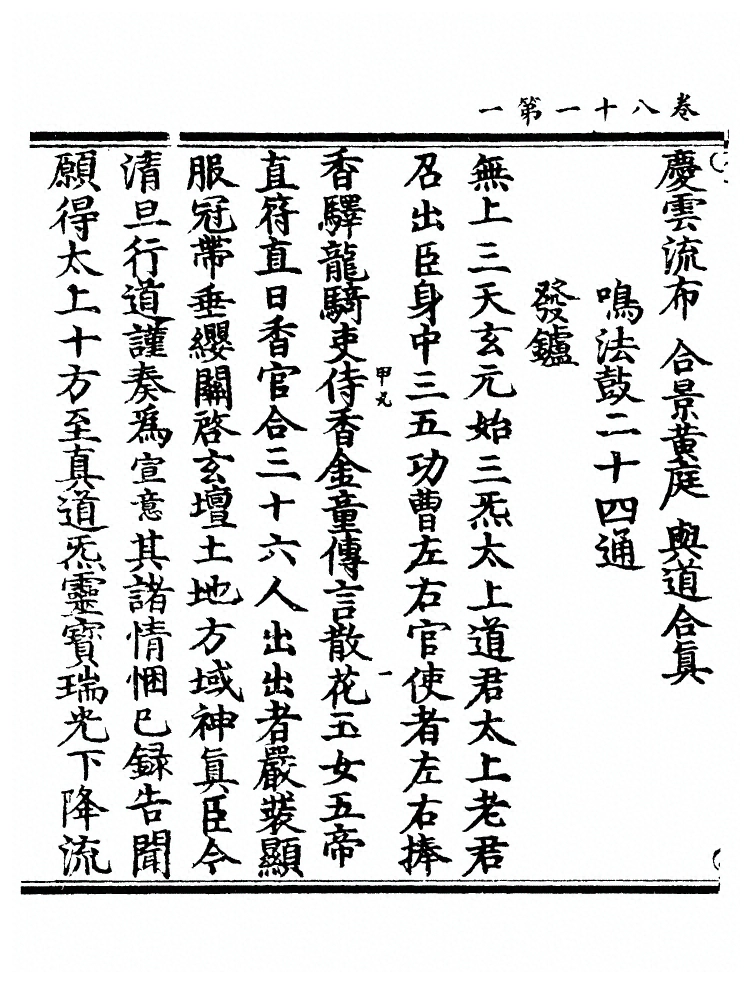 卷八十一第一
慶雲流布 合景黃庭 與道合眞
鳴法鼓二十四通
發鑪
無上三天玄元始三炁太上道君太上老君
召出臣身中三五功曹左右官使者左右捧
香驛龍騎吏侍香金童傳言散花玉女五帝
甲九 一
直符直日香官合三十六人出出者嚴裝顯
服冠帶垂纓關啓玄壇土地方域神眞臣今
清旦行道謹奏爲宣意其諸情悃已録告聞
願得太上十方至真道炁靈寶瑞光下降流